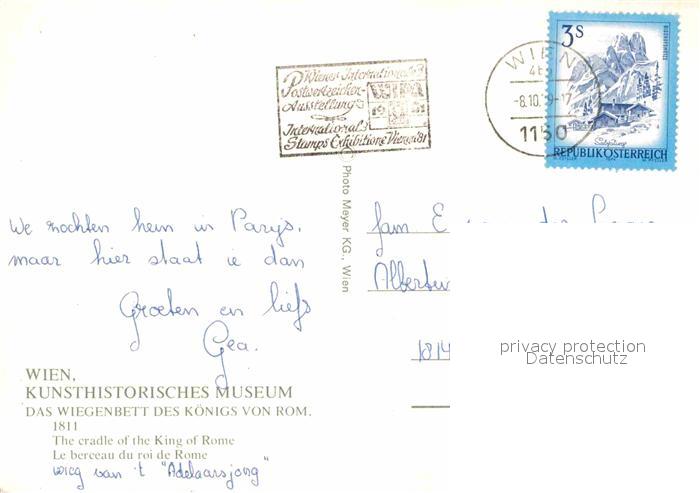 Wiener Internationale
Postwertzeichen-
Ausstellung
WIPA
1981
International
Stamps Exhibition Vienna 81
WIEN
-8.10.79-17
1150
3 S
REPUBLIK ÖSTERREICH
Photo Meyer KG., Wien
We zochten hem in Parijs,
maar hier staat ie dan
Groeten en liefs
Gea.
fam E
Albert
1814
privacy protection
Datenschutz
WIEN,
KUNSTHISTORISCHES MUSEUM
DAS WIEGENBETT DES KÖNIGS VON ROM.
1811
The cradle of the King of Rome
Le berceau du roi de Rome
wieg van 't "Adelaarsjong"